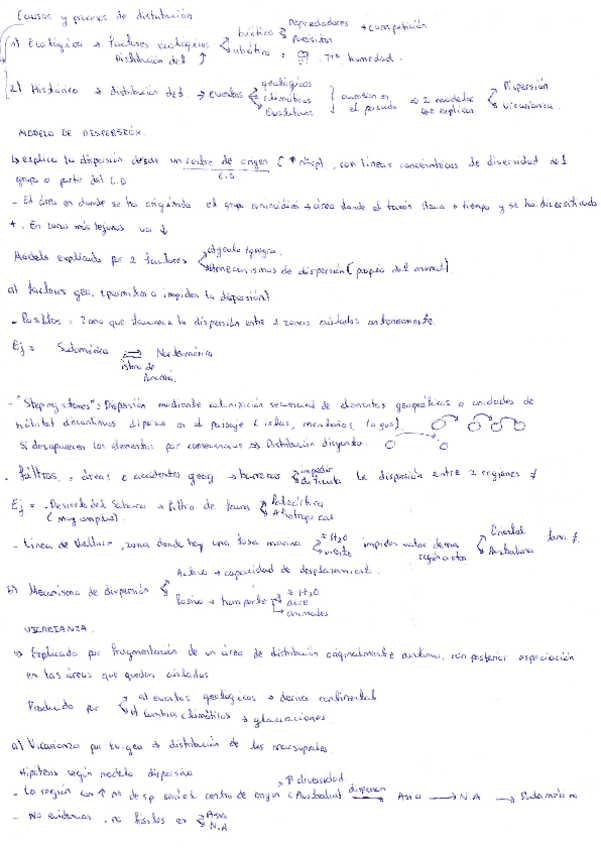 Causas y procesos de distribución
1) Ecológicas → Factores ecológicos bióticos Depredadores Parásitos + competición
Distribución del abióticos = Tª humedad.
2) Histórica → distribución del → eventos geológicos climáticos Evolutivos ocurridos en el pasado ⇒ 2 modelos que explican Dispersión Vicarianza.
MODELO DE DISPERSIÓN.
↳ explica la dispersión desde un centro de origen (↑ nº sp), con líneas concéntricas de diversidad del
grupo a partir del C.O
- El área en donde se ha originado el grupo coincidiría → área donde el taxón lleva + tiempo y se ha diversificado
+. En zonas más lejanas va ↓
Modelo explicado por 2 factores
mecanismos de dispersión (propia del animal).
a) factores geo. (permiten o impiden la dispersión)
- Pasillos = Zona que favorece la dispersión entre 2 zonas
Ej = Sudamérica ⇌ Norteamérica
istmo de Panamá.
- "Steping stones": Dispersión mediante colonización secuencial de elementos geográficos o unidades de
hábitat discontinuos dispersos en el paisaje (islas, montañas, lagos)
Si desaparecen los elementos por consecuencia ⇒ Distribución disyunta.
- filtros. = áreas o accidentes geog → barreras impiden dificulta la dispersión entre 2 regiones ≠
Ej = - Desierto del Sahara → filtro de fauna Paleártica Afrotropical
(muy amplio).
- Línea de Wallace, zona donde hay una fosa marina ≠ H₂O viento impiden Oriental Australiana fauna ≠.
b) Mecanismo de dispersión Activa → capacidad de desplazamiento.
Pasiva → transporte H₂O aire animales
VICARIANZA.
⇒ Explicada por fragmentación de un área de distribución originalmente continua, con posterior especiación
en las áreas que quedan aisladas.
Producida por a) eventos geológicos → deriva continental
b) Cambios climáticos → glaciaciones
a) Vicarianza por ev. geo → distribución de los marsupiales
Hipótesis según modelo dispersivo
- La región con ↑ nº de sp sería el centro de origen (Australia) ↑ diversidad dispersan → Asia → N.A → Sudamérica
- No evidencias, no fósiles en Asia N.A.